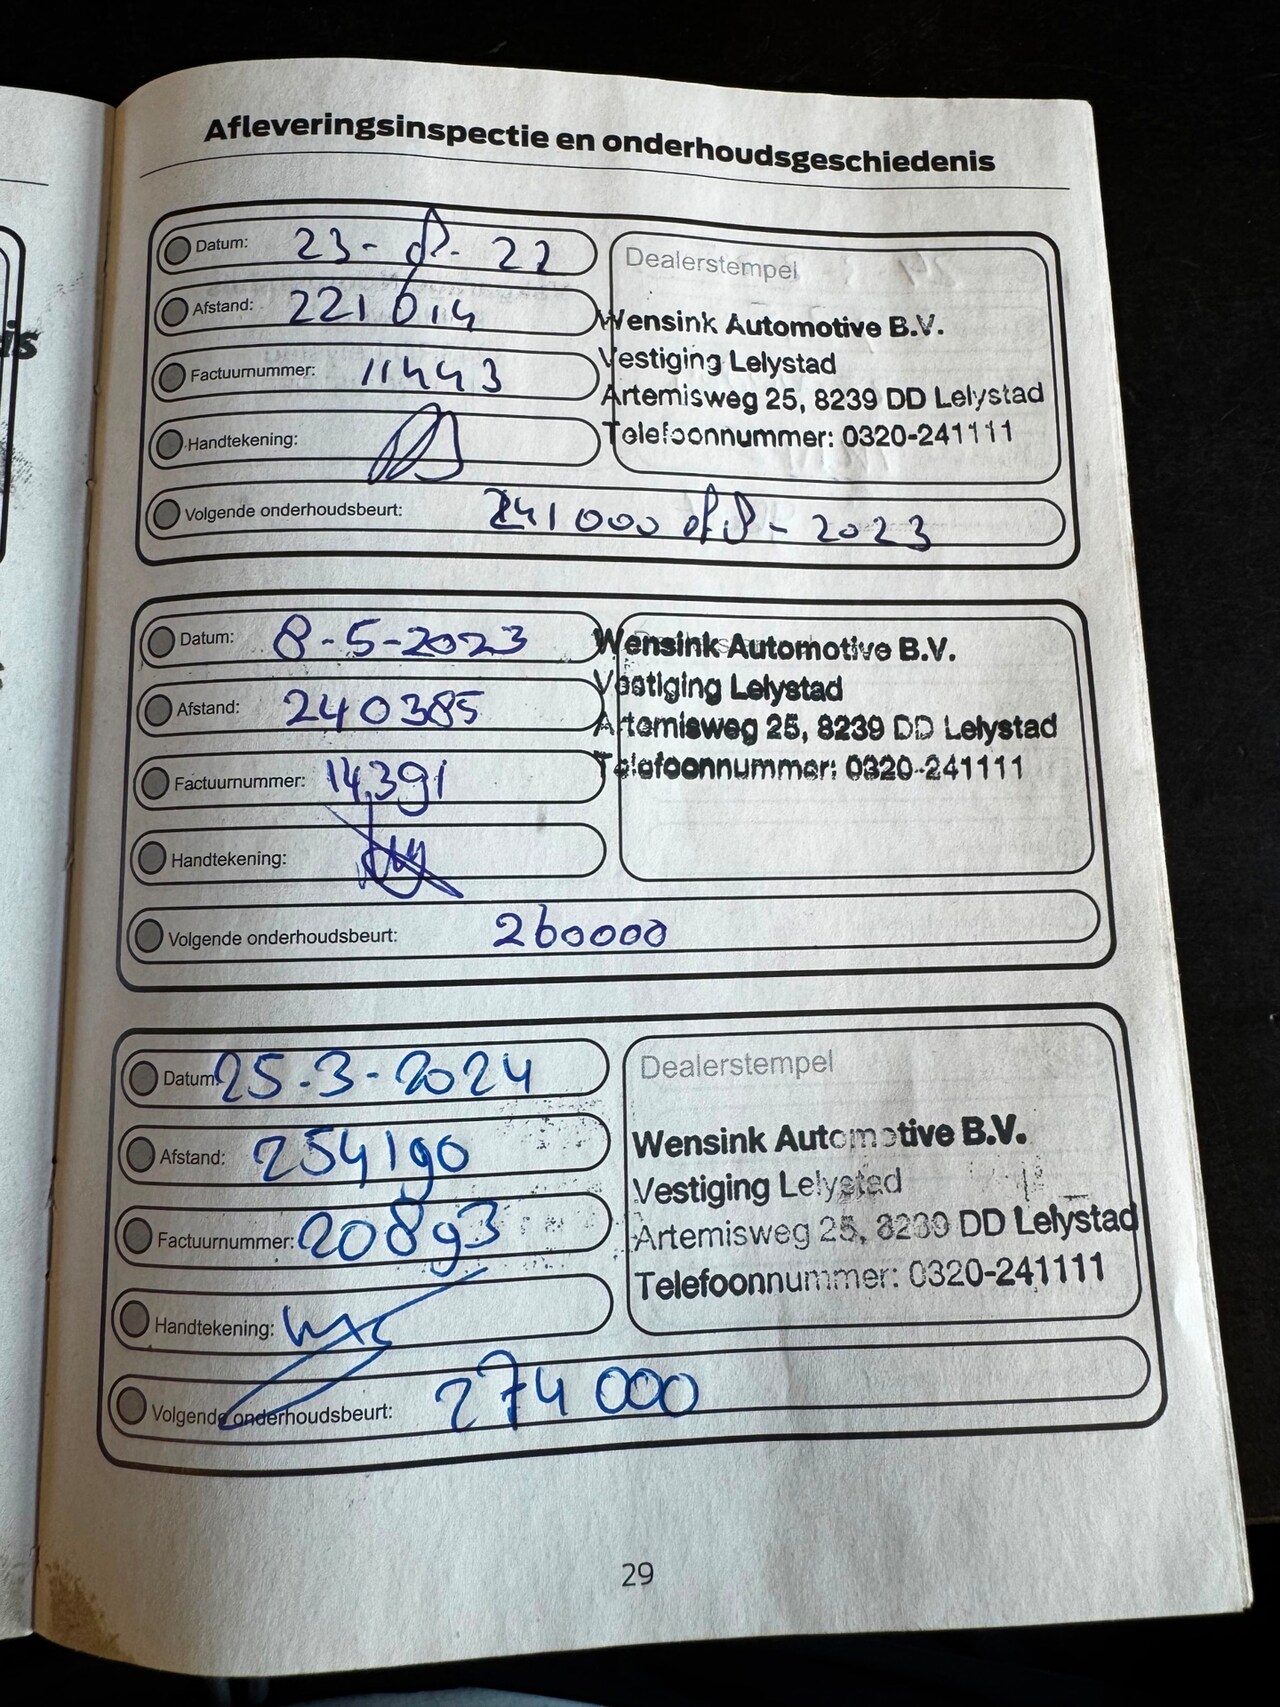 Afleveringsinspectie en onderhoudsgeschiedenis
Datum: 23-8-22
Afstand: 221014
Factuurnummer: 11443
Handtekening:
Dealerstempel
Wensink Automotive B.V.
Vestiging Lelystad
Artemisweg 25, 8239 DD Lelystad
Telefoonnummer: 0320-241111
Volgende onderhoudsbeurt: 241000 of 8-2023
Datum: 8-5-2023
Afstand: 240385
Factuurnummer: 14391
Handtekening:
Wensink Automotive B.V.
Vestiging Lelystad
Artemisweg 25, 8239 DD Lelystad
Telefoonnummer: 0320-241111
Volgende onderhoudsbeurt: 260000
Datum: 25-3-2024
Afstand: 254190
Factuurnummer: 20893
Handtekening:
Dealerstempel
Wensink Automotive B.V.
Vestiging Lelystad
Artemisweg 25, 8239 DD Lelystad
Telefoonnummer: 0320-241111
Volgende onderhoudsbeurt: 274 000
29